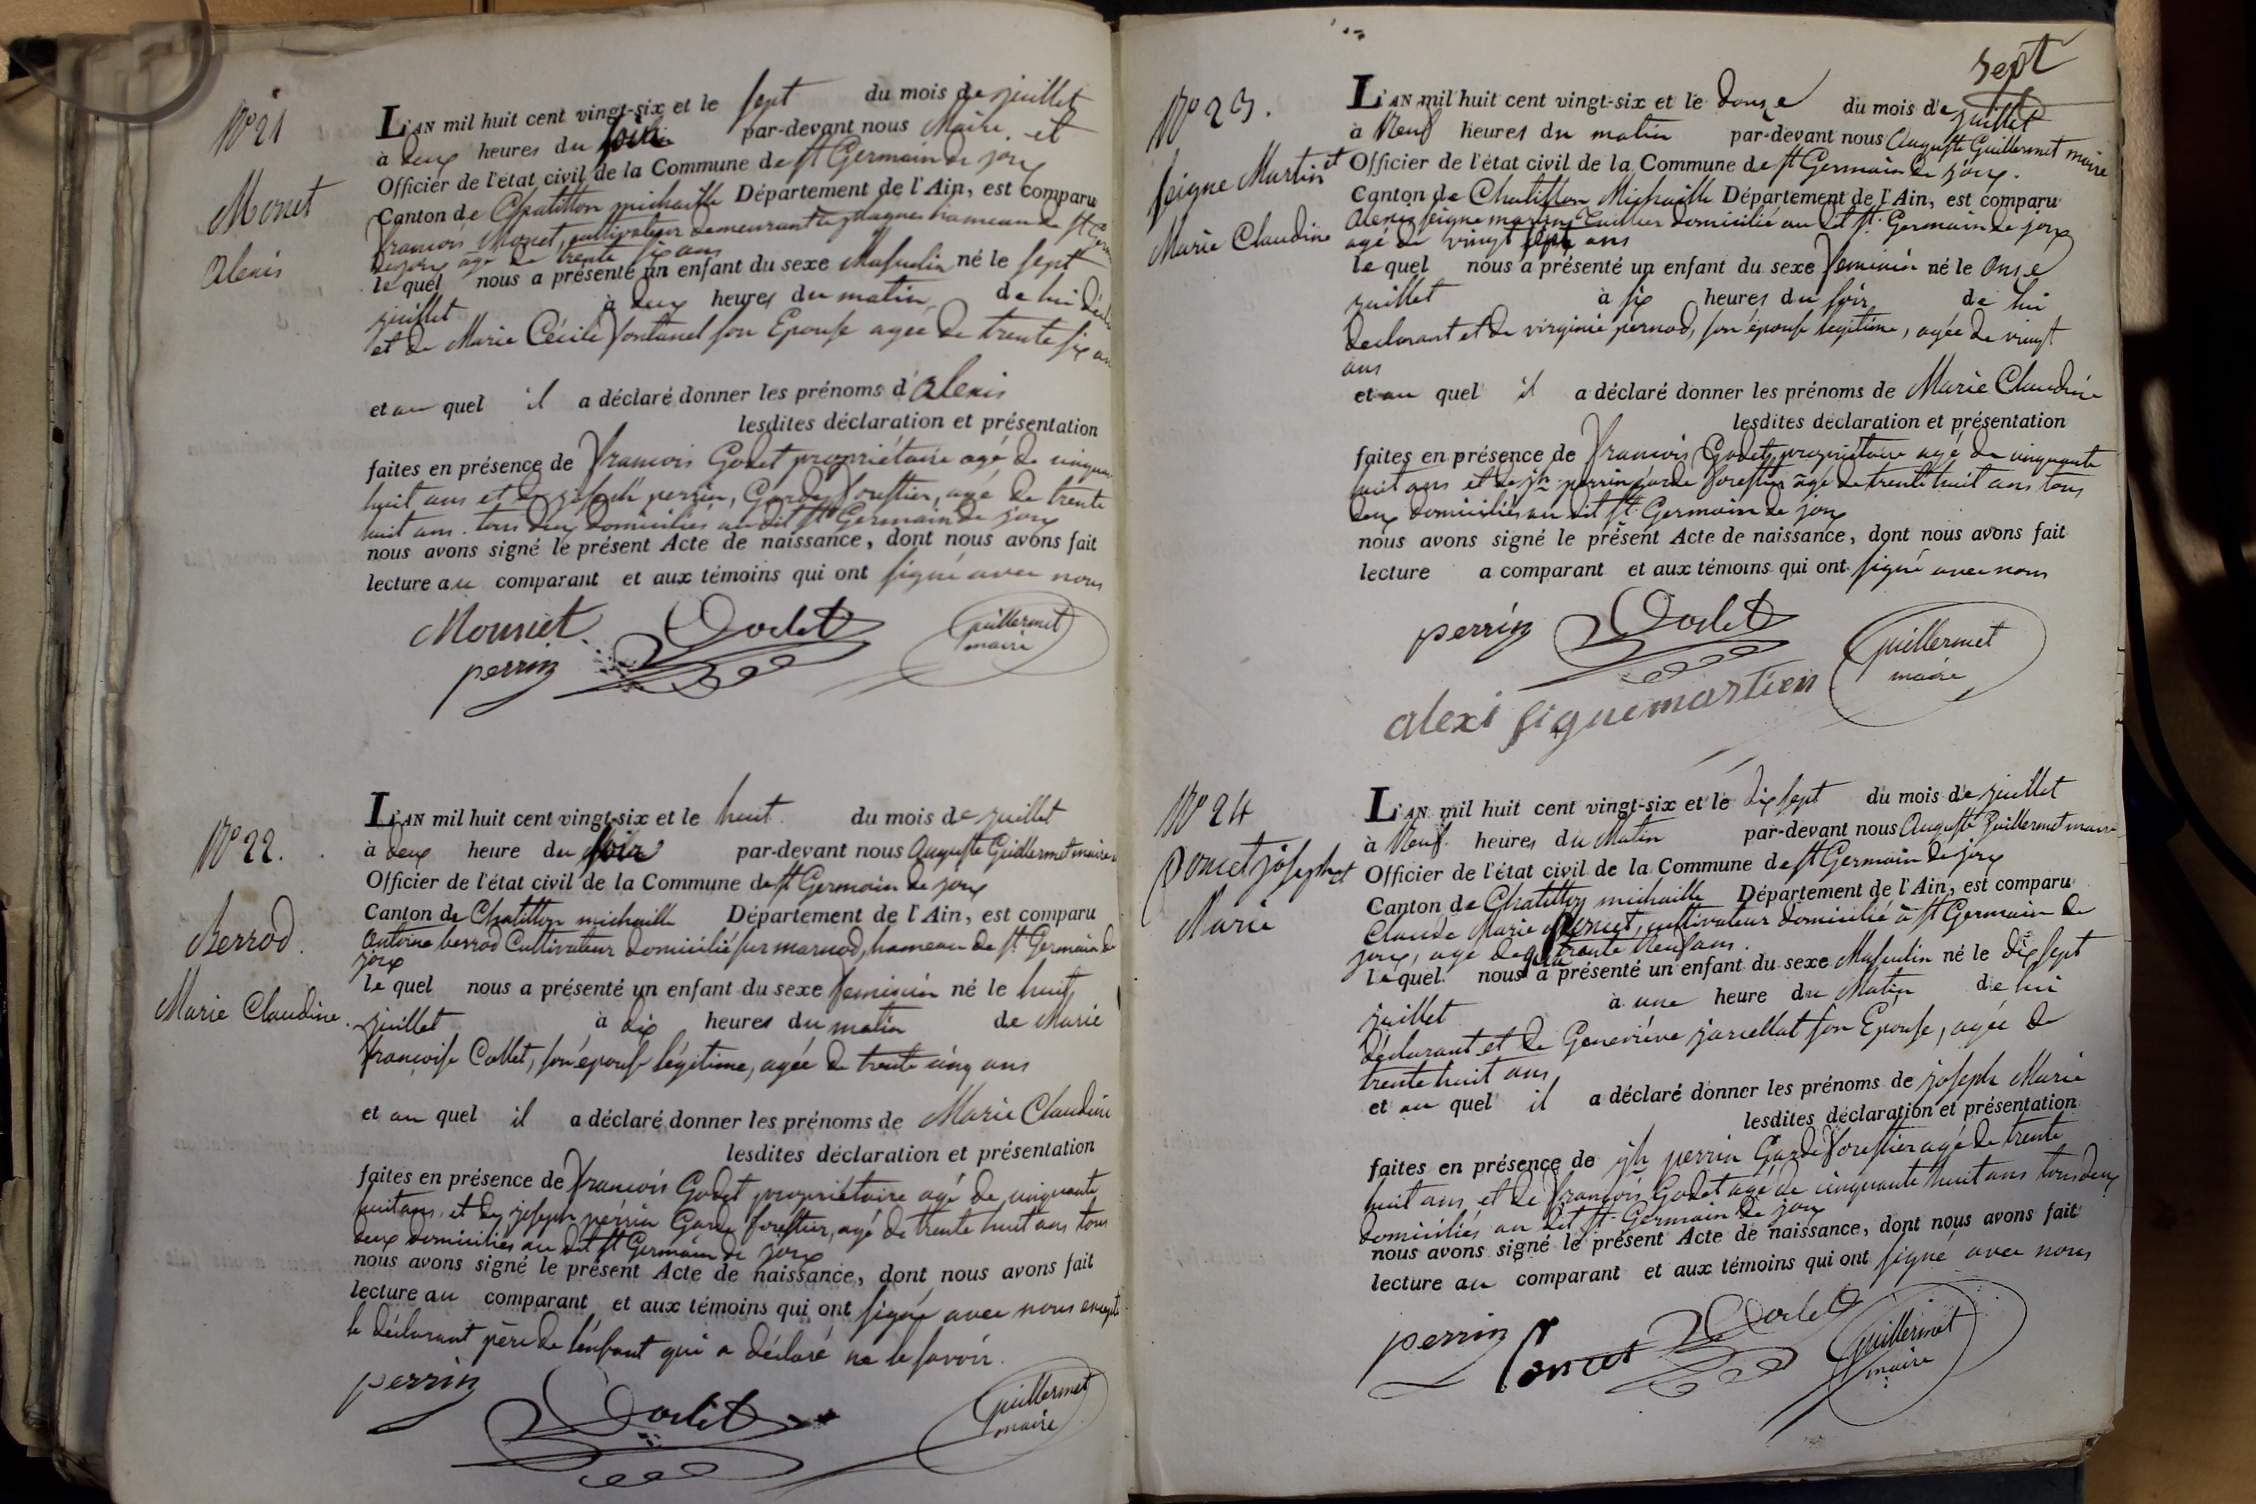 N° 21
Monet
Alexis
L'AN mil huit cent vingt-six et le sept du mois de juillet
à deux heures du soir par-devant nous Maire et
Officier de l'état civil de la Commune de St Germain de joux
Canton de Chatillon michaille Département de l'Ain, est comparu
francois Monet, cultivateur demeurant à plagnes hameau de St Germ
de joux agé de trente six ans
le quel nous a présenté un enfant du sexe Masculin né le sept
juillet à deux heures du matin de lui décla
et de Marie Cécile fontanel son Epouse agée de trente six ans
et au quel il a déclaré donner les prénoms d'alexis
lesdites déclaration et présentation
faites en présence de francois Godet propriétaire agé de cinquante
huit ans et de joseph perrin, Garde forestier, agé de trente
huit ans. tous deux domiciliés au dit St Germain de joux
nous avons signé le présent Acte de naissance, dont nous avons fait
lecture au comparant et aux témoins qui ont signé avec nous
Mounet Godet Guillermet
perrin maire
N° 22.
Berrod.
Marie Claudine.
L'AN mil huit cent vingt-six et le huit du mois de juillet
à deux heure du soir par-devant nous Auguste Guillermet maire
Officier de l'état civil de la Commune de St Germain de joux
Canton de Chatillon michaille Département de l'Ain, est comparu
Antoine berrod Cultivateur domicilié sur marnod, hameau de St Germain de
joux
le quel nous a présenté un enfant du sexe feminin né le huit
juillet à dix heures du matin de Marie
françoise Collet, son épouse légitime, agée de trente cinq ans
et au quel il a déclaré donner les prénoms de Marie Claudine
lesdites déclaration et présentation
faites en présence de francois Godet propriétaire agé de cinquante
huit ans, et de joseph perrin Garde forestier, agé de trente huit ans tous
deux domiciliés au dit St Germain de joux
nous avons signé le présent Acte de naissance, dont nous avons fait
lecture au comparant et aux témoins qui ont signé avec nous excepté
le déclarant père de l'enfant qui a déclaré ne le savoir.
perrin Godet Guillermet
maire
sept
N° 23.
seigne Martin et
Marie Claudine
L'AN mil huit cent vingt-six et le douze du mois de juillet
à Neuf heures du matin par-devant nous Auguste Guillermet maire
Officier de l'état civil de la Commune de St Germain de joux.
Canton de Chatillon Michaille Département de l'Ain, est comparu
Alexis seigne martin domicilié au dit St Germain de joux
agé de vingt sept ans
le quel nous a présenté un enfant du sexe feminin né le onze
juillet à six heures du soir de lui
declarant et de virginie pernod, son épouse legitime, agée de vingt
ans
et au quel il a déclaré donner les prénoms de Marie Claudine
lesdites déclaration et présentation
faites en présence de francois Godet, propriétaire agé de cinquante
huit ans et de jh perrin garde forestier agé de trente huit ans tous
deux domiciliés au dit St Germain de joux
nous avons signé le présent Acte de naissance, dont nous avons fait
lecture a comparant et aux témoins qui ont signé avec nous
perrin Godet Guillermet
maire
alexi signemartien
N° 24
Poncet joseph et
Marie
L'AN mil huit cent vingt-six et le dix sept du mois de juillet
à Neuf heures du Matin par-devant nous Auguste Guillermet maire
Officier de l'état civil de la Commune de St Germain de joux
Canton de Chatillon michaille Département de l'Ain, est comparu
Claude Marie Poncet, cultivateur domicilié à St Germain de
joux, agé de trente Neuf ans.
le quel nous a présenté un enfant du sexe Masculin né le dix sept
juillet à une heure du Matin de lui
déclarant et de Geneviève jarcellat son Epouse, agée de
trente huit ans
et au quel il a déclaré donner les prénoms de joseph Marie
lesdites déclaration et présentation
faites en présence de jh perrin Garde forestier agé de trente
huit ans, et de françois Godet agé de cinquante huit ans tous deux
domiciliés au dit St Germain de joux
nous avons signé le présent Acte de naissance, dont nous avons fait
lecture au comparant et aux témoins qui ont signé avec nous
perrin Poncet Godet Guillermet
maire